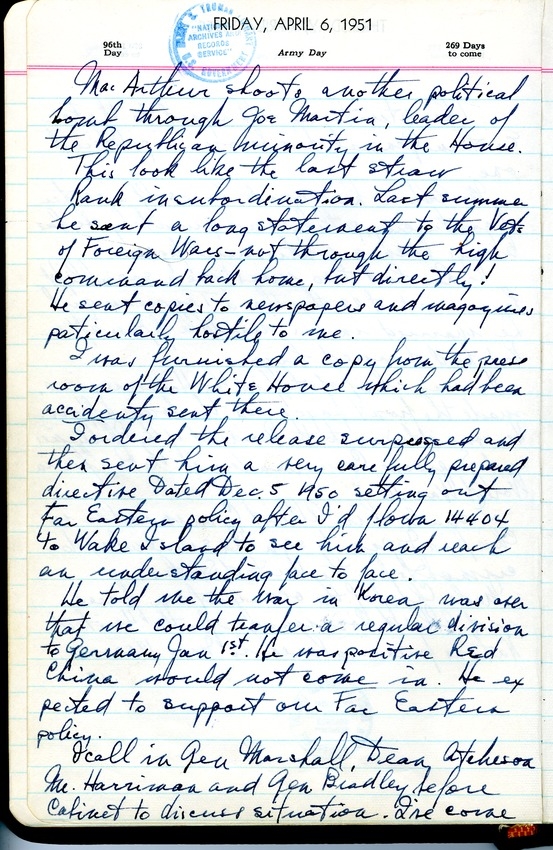 FRIDAY, APRIL 6, 1951
96th
Day
Army Day
269 Days
to come
HARRY S. TRUMAN
"NATIONAL
ARCHIVES AND
RECORDS
SERVICE"
U.S. GOVERNMENT
MacArthur shoots another political
bomb through Joe Martin, leader of
the Republican minority in the House.
This look like the last straw
Rank insubordination. Last summer
he sent a long statement to the Vets
of Foreign Wars—not through the high
command back home, but directly!
He sent copies to newspapers and magazines
paticularly hostile to me.
I was furnished a copy from the press
room of the White House which had been
accidenty sent there.
I ordered the release surpressed and
then sent him a very carefully prepared
directive Dated Dec. 5 1950 setting out
Far Eastern policy after I'd flown 14404
to Wake Island to see him and reach
an understanding face to face.
He told me the war in Korea was over
that we could tranfer a regular division
to Germany Jan 1st. He was positive Red
China would not come in. He ex
pected to support our Far Eastern
policy.
I call in Gen Marshall, Dean Atcheson
Mr. Harriman and Gen Bradley before
Cabinet to discuss situation. I've come